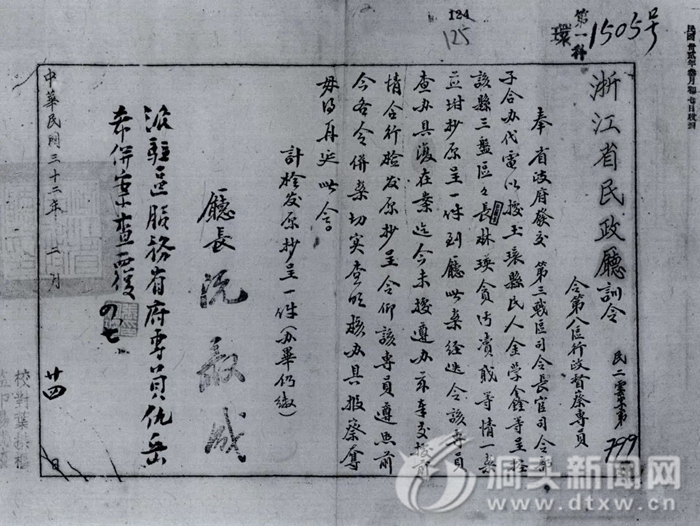 1505号
第一科
環
124
125
浙江省民政廳訓令
民二
799
令第八區行政督察專員
奉 省政府發交 第三戰區司令長官司令部
子合办代電以據玉環縣民人金學鑫等呈控
該縣三盤區區長林瑛貪污瀆職等情
抄原呈一件到廳此案經迭令該專員
查办具復在案迄今未據遵办
情合行檢发原抄呈令仰該專員遵照前
今各令併案切实查明核办具报察奪
毋得再延此令。
計檢发原抄呈一件(办畢仍繳)
廳長阮毅成
派駐區服務省府專員仇岳
希併案查覆
中華民國三十二年 二月 廿四日
洞头新闻网
www.dtxw.cn